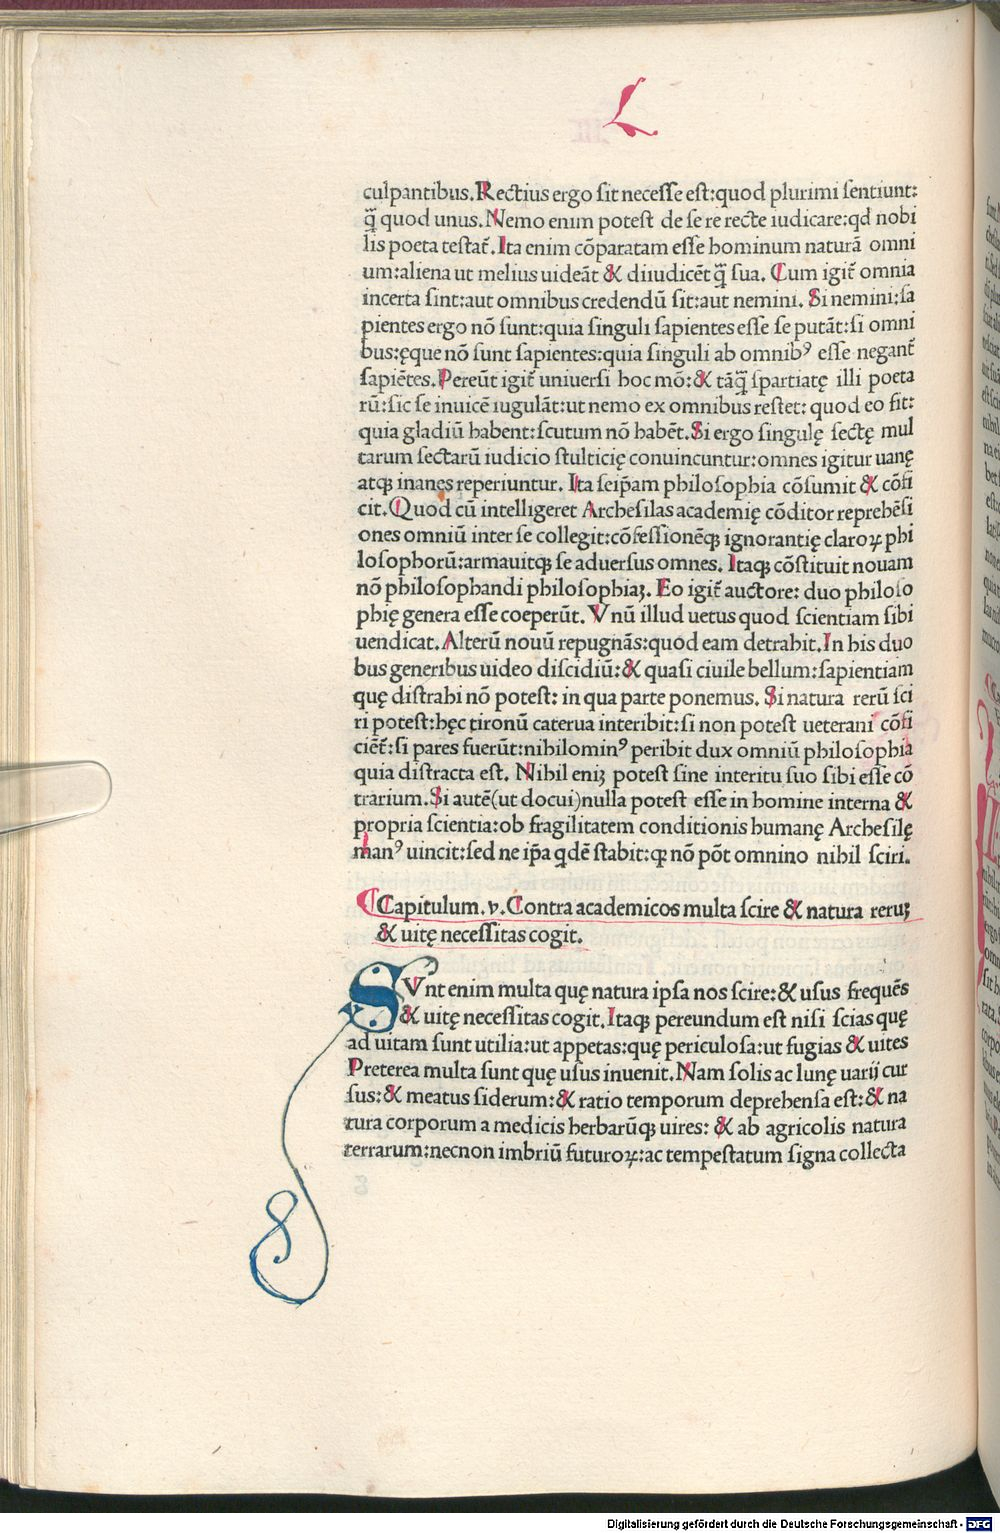 L
culpantibus. Rectius ergo sit necesse est: quod plurimi sentiunt:
q̃ quod unus. Nemo enim potest de se re recte iudicare: qd nobi
lis poeta testat̃. Ita enim cõparatam esse hominum naturã omni
um: aliena ut melius uideãt & diiudicẽt q̃ sua. Cum igit̃ omnia
incerta sint: aut omnibus credendũ sit: aut nemini. Si nemini: sa
pientes ergo nõ sunt: quia singuli sapientes esse se putãt: si omni
bus: ęque nõ sunt sapientes: quia singuli ab omnibꝰ esse negant̃
sapiẽtes. Pereũt igit̃ uniuersi hoc mõ: & tãq̃ spartiatę illi poeta
rũ: sic se inuicẽ iugulãt: ut nemo ex omnibus restet: quod eo fit:
quia gladiũ habent: scutum nõ habẽt. Si ergo singulę sectę mul
tarum sectarũ iudicio stulticię conuincuntur: omnes igitur uanę
atqꝫ inanes reperiuntur. Ita seip̃am philosophia cõsumit & cõfi
cit. Quod cũ intelligeret Archesilas academię cõditor reprehẽsi
ones omniũ inter se collegit: cõfessionẽqꝫ ignorantię claroꝝ phi
losophorũ: armauitqꝫ se aduersus omnes. Itaqꝫ cõstituit nouam
nõ philosophandi philosophiaꝫ. Eo igit̃ auctore: duo philoso
phię genera esse coeperũt. Vnũ illud uetus quod scientiam sibi
uendicat. Alterũ nouũ repugnãs: quod eam detrahit. In his duo
bus generibus uideo discidiũ: & quasi ciuile bellum: sapientiam
quę distrahi nõ potest: in qua parte ponemus. Si natura rerũ sci
ri potest: hęc tironũ caterua interibit: si non potest ueterani cõfi
ciẽt̃: si pares fuerũt: nihilominꝰ peribit dux omniũ philosophia
quia distracta est. Nihil eniꝫ potest sine interitu suo sibi esse cõ
trarium. Si autẽ (ut docui) nulla potest esse in homine interna &
propria scientia: ob fragilitatem conditionis humanę Archesilę
manꝰ uincit: sed ne ip̃a qdẽ stabit: qꝫ nõ põt omnino nihil sciri.
Capitulum. v. Contra academicos multa scire & natura reruꝫ
& uitę necessitas cogit.
SVnt enim multa quę natura ipsa nos scire: & usus frequẽs
& uitę necessitas cogit. Itaqꝫ pereundum est nisi scias quę
ad uitam sunt utilia: ut appetas: quę periculosa: ut fugias & uites
Preterea multa sunt quę usus inuenit. Nam solis ac lunę uarij cur
sus: & meatus siderum: & ratio temporum deprehensa est: & na
tura corporum a medicis herbarũqꝫ uires: & ab agricolis natura
terrarum: necnon imbriũ futuroꝝ: ac tempestatum signa collecta
Digitalisierung gefördert durch die Deutsche Forschungsgemeinschaft - DFG